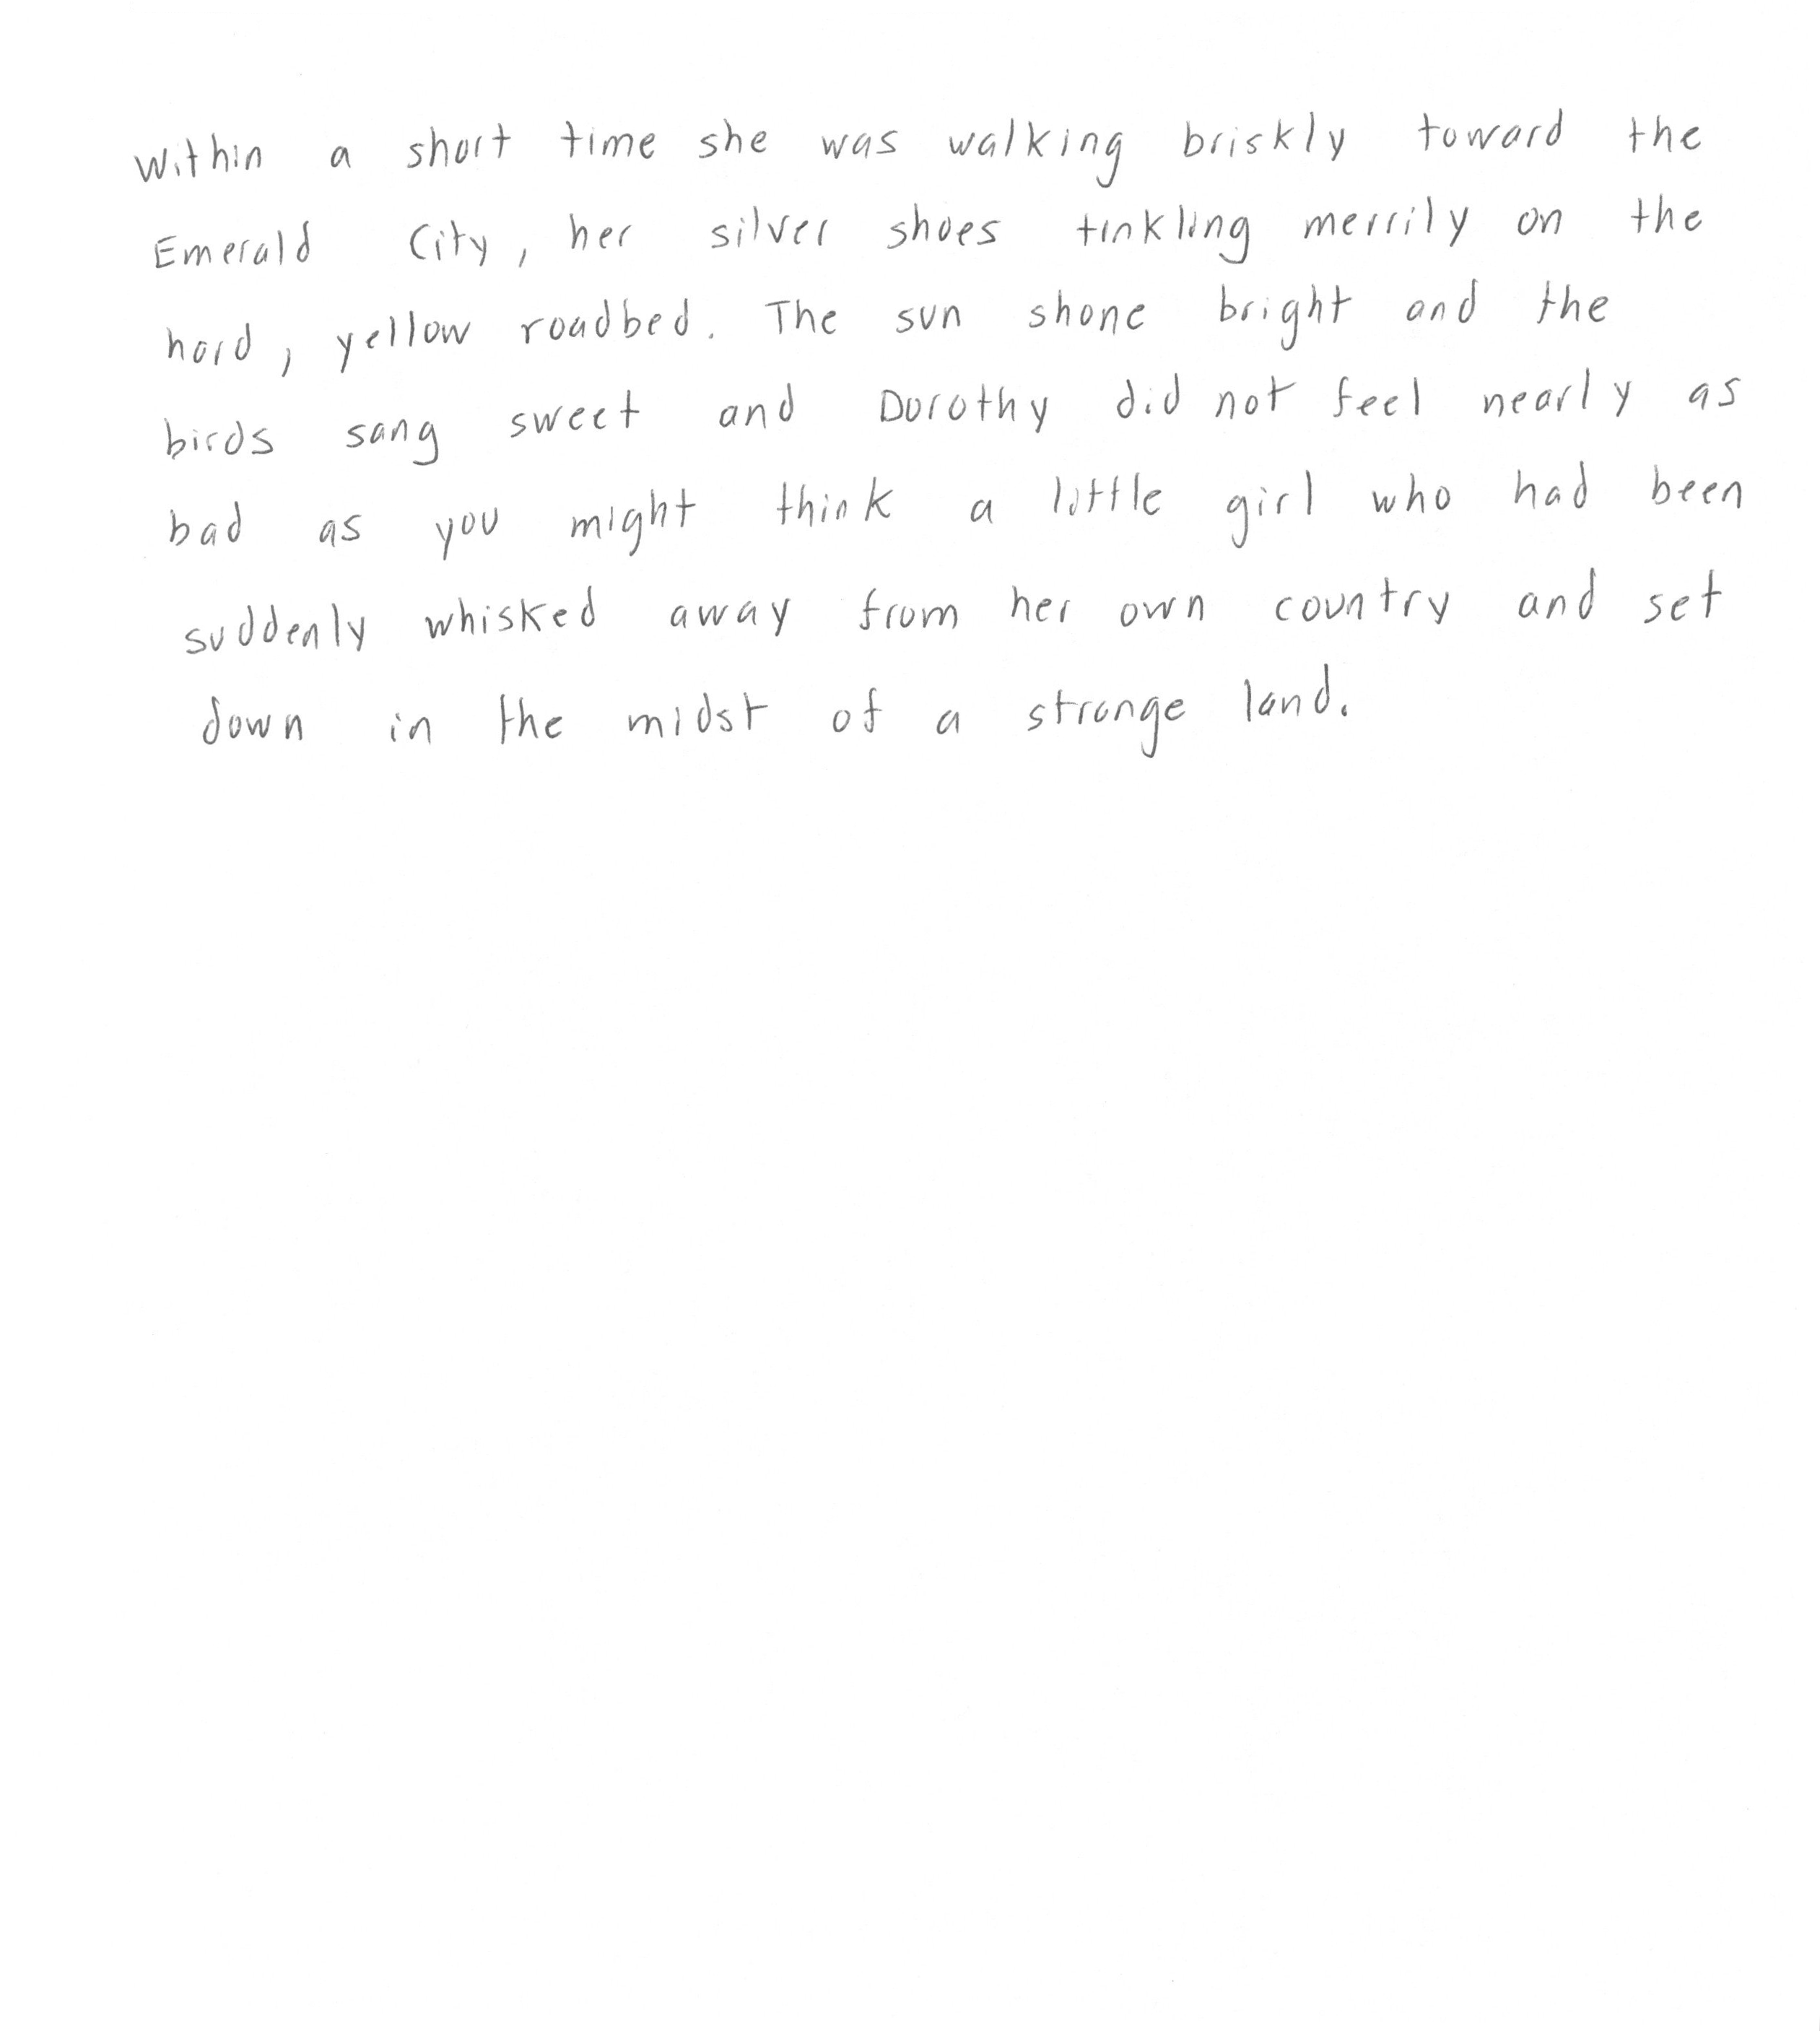 Within a short time she was walking briskly toward the
Emerald City, her silver shoes tinkling merrily on the
hard, yellow roadbed. The sun shone bright and the
birds sang sweet and Dorothy did not feel nearly as
bad as you might think a little girl who had been
suddenly whisked away from her own country and set
down in the midst of a strange land.